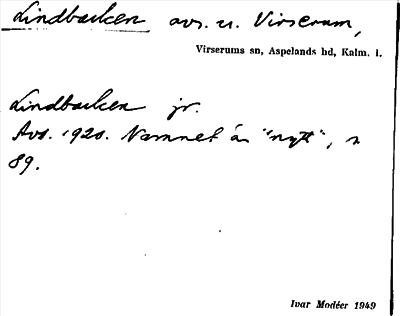 Lindbacken avs. u. Virserum,
Virserums sn, Aspelands hd, Kalm. l.
Lindbacken jr.
Avs. 1920. Namnet är "nytt", s
89.
Ivar Modéer 1949